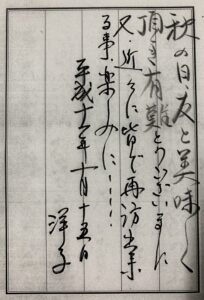 秋の日友と美味しく
頂き有難とうございました
又、近々に皆で再訪出来
る事楽しみに……
平成十六年十月十五日
洋子